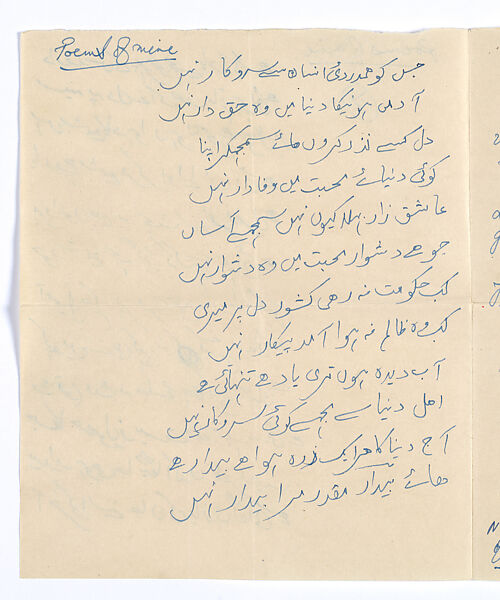 Poems of mine
جس کو ہمدردئ انساں سے سروکار نہیں
آدمی ہونیکا دنیا میں وہ حق دار نہیں
دل کسے نذر کروں ہائے سمجھکر اپنا
کوئی دنیائے محبت میں وفادار نہیں
عاشق زار بھلا کیوں نہیں سمجھے آساں
جو ھے دشوار محبت میں وہ دشوار نہیں
کب حکومت نہ رھی کشور دل پر میری
کب وہ ظالم نہ ہوا آمد پیکار نہیں
آب دیدہ ہوں تری یاد ھے تنہائی ھے
اھل دنیا سے مجھے کوئی سروکار نہیں
آج دنیا کا ھر ایک ذرہ ہوا ھے بیدار
ھائے بیدار مقدر مرا بیدار نہیں